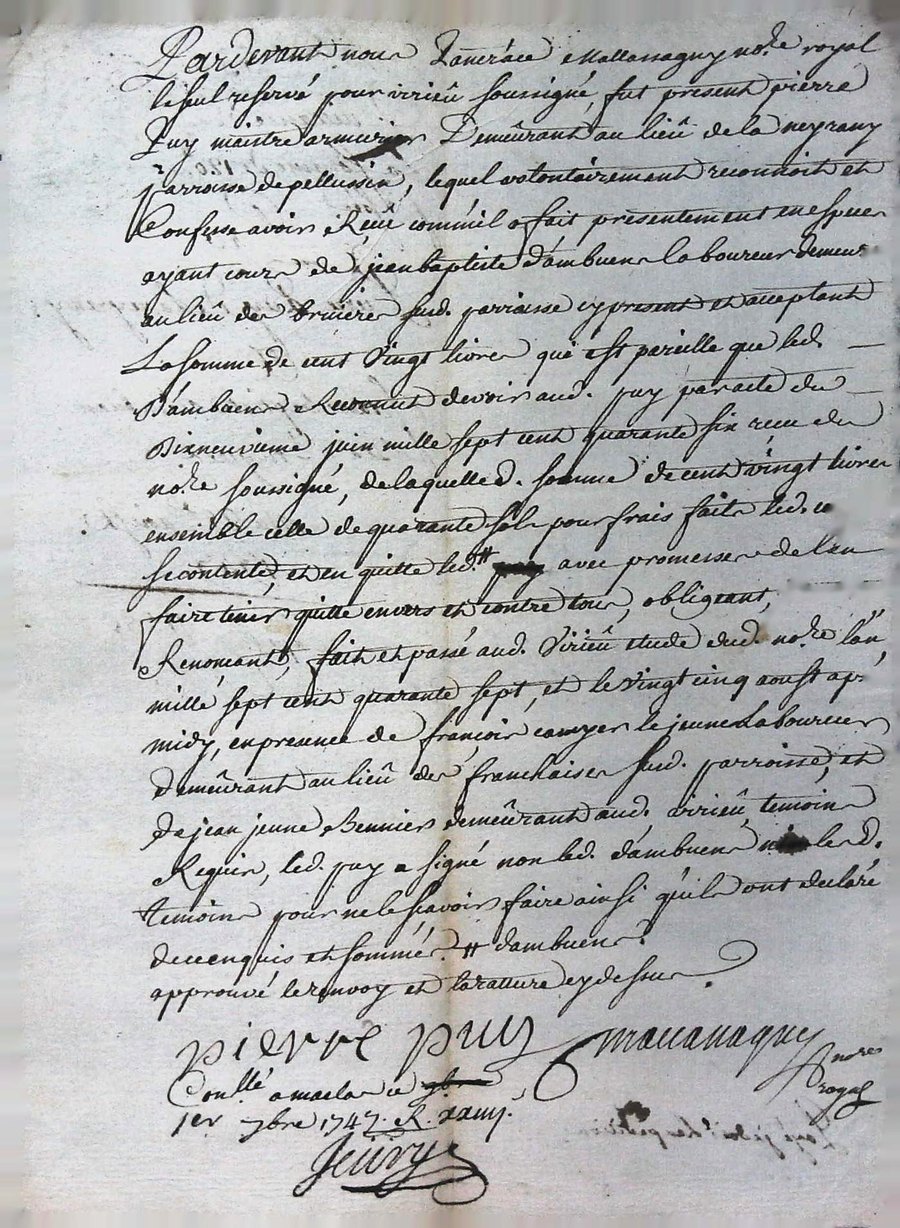 Pardevant nous Mattanaguy no.re royal
le seul reservé pour virieû soussigné, fut present pierre
Puy maitre armurier Demeûrant au lieû de la
parroisse de pellussin, lequel volontairement reconnoit et
Confesse avoir Reçeu comm'il a fait presentement en especes
ayant cours de jean baptiste dambuens laboureur demeur.
au lieû des bruieres susd. parroisse cy present et acceptant
La somme de cent vingt livres que est pareille que led.
Dambuens Reconnut devoir aud. puy par acte du
Dixneuvieme juin mille sept cent quarante six receu du
no.re soussigné, de laquelle d. somme de cent vingt livres
ensemble celle de quarante sols pour frais faits led.
se contente, et en quitte led. # avec promesse de l'en
faire tenir quitte envers et contre tous, obligeant,
Renonceant, fait et passé aud. Virieû etude dud. no.re l'an
mille sept cent quarante sept, et le vingt cinq aoust apr.
midy, en presence de françois le jeune Laboureur
demeûrant au lieû des franchises susd. parroisse, et
de jean jeune Bennier demeûrant aud. virieû, temoins
Requis, led. puy a signé non led. dambuens les d.
temoins pour ne le sçavoir faire ainsi qu'ils ont declaré
de ce enquis et sommés. # dambuens.
approuvé le renvoy et la rature cy dessus
pierre puy Mattanaguy
no.re royal
Con.llé a maclas ce
1er 7bre 1747. R.